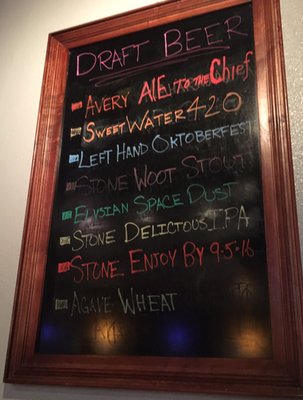 DRAFT BEER
AVERY ALE TO THE Chief
SWEETWATER 420
LEFT HAND OKTOBERFEST
STONE WOOT STOUT
ELYSIAN SPACE DUST
STONE DELICIOUS IPA
STONE ENJOY BY 9.5.16
AGAVE WHEAT